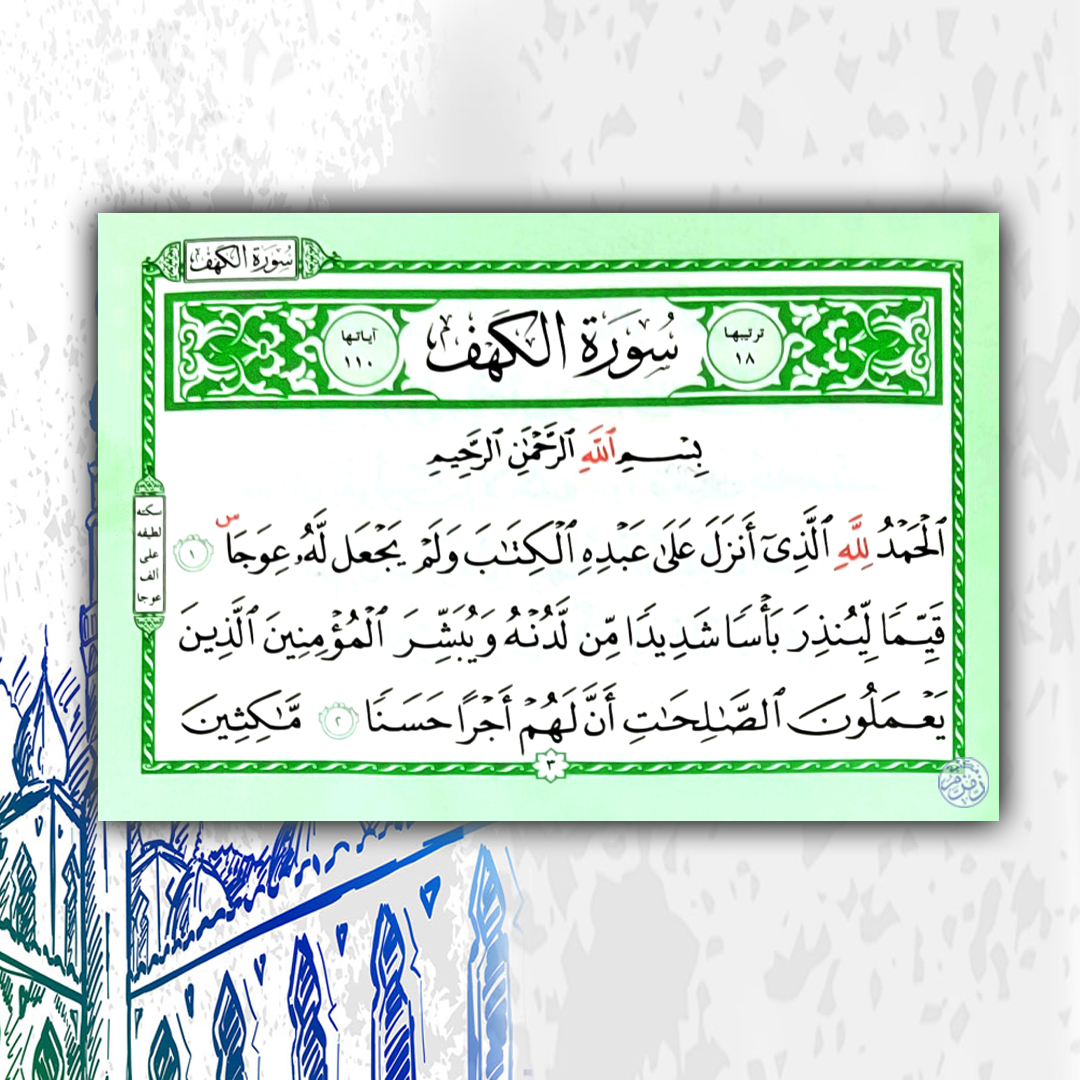 سُورَةُ الكَهْفِ
سُورَةُ الكَهْفِ
ترتيبها
١٨
آياتها
١١٠
بِسْمِ ٱللَّهِ ٱلرَّحْمَٰنِ ٱلرَّحِيمِ
ٱلْحَمْدُ لِلَّهِ ٱلَّذِىٓ أَنزَلَ عَلَىٰ عَبْدِهِ ٱلْكِتَٰبَ وَلَمْ يَجْعَل لَّهُۥ عِوَجَاۜ ١
قَيِّمًا لِّيُنذِرَ بَأْسًا شَدِيدًا مِّن لَّدُنْهُ وَيُبَشِّرَ ٱلْمُؤْمِنِينَ ٱلَّذِينَ
يَعْمَلُونَ ٱلصَّٰلِحَٰتِ أَنَّ لَهُمْ أَجْرًا حَسَنًا ٢ مَّٰكِثِينَ
سكته
لطيفه
على
الف
عوجا
٣
زمزم